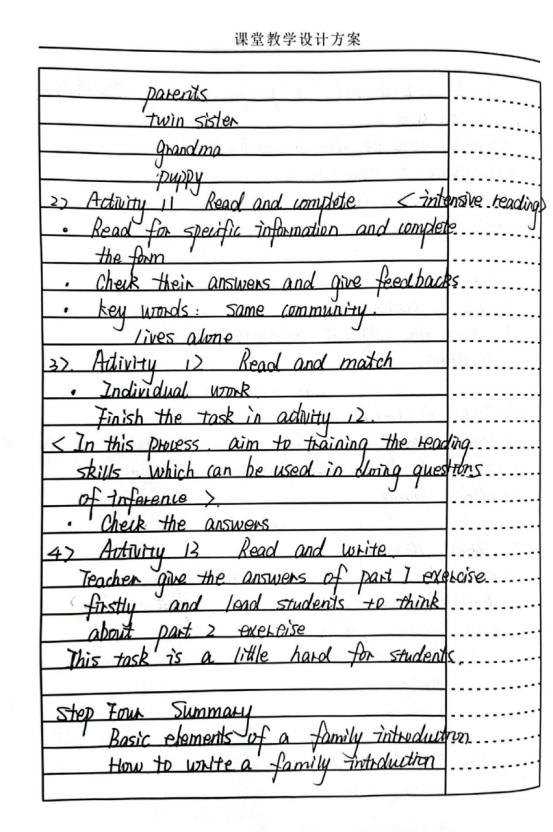 课堂教学设计方案
parents
twin sister
grandma
puppy
2> Activity 11 Read and complete <intensive reading>
· Read for specific information and complete
the form
· Check their answers and give feedbacks
· key words: same community.
lives alone
3>. Activity 12 Read and match
· Individual work
Finish the task in activity 12.
<In this process. aim to training the reading
skills. which can be used in doing questions
of inference>.
· Check the answers
4> Activity 13 Read and write.
Teacher give the answers of part 1 exercise
firstly and lead students to think
about part 2 exercise
This task is a little hard for students.
Step Four Summary
Basic elements of a family introduction
How to write a family introduction